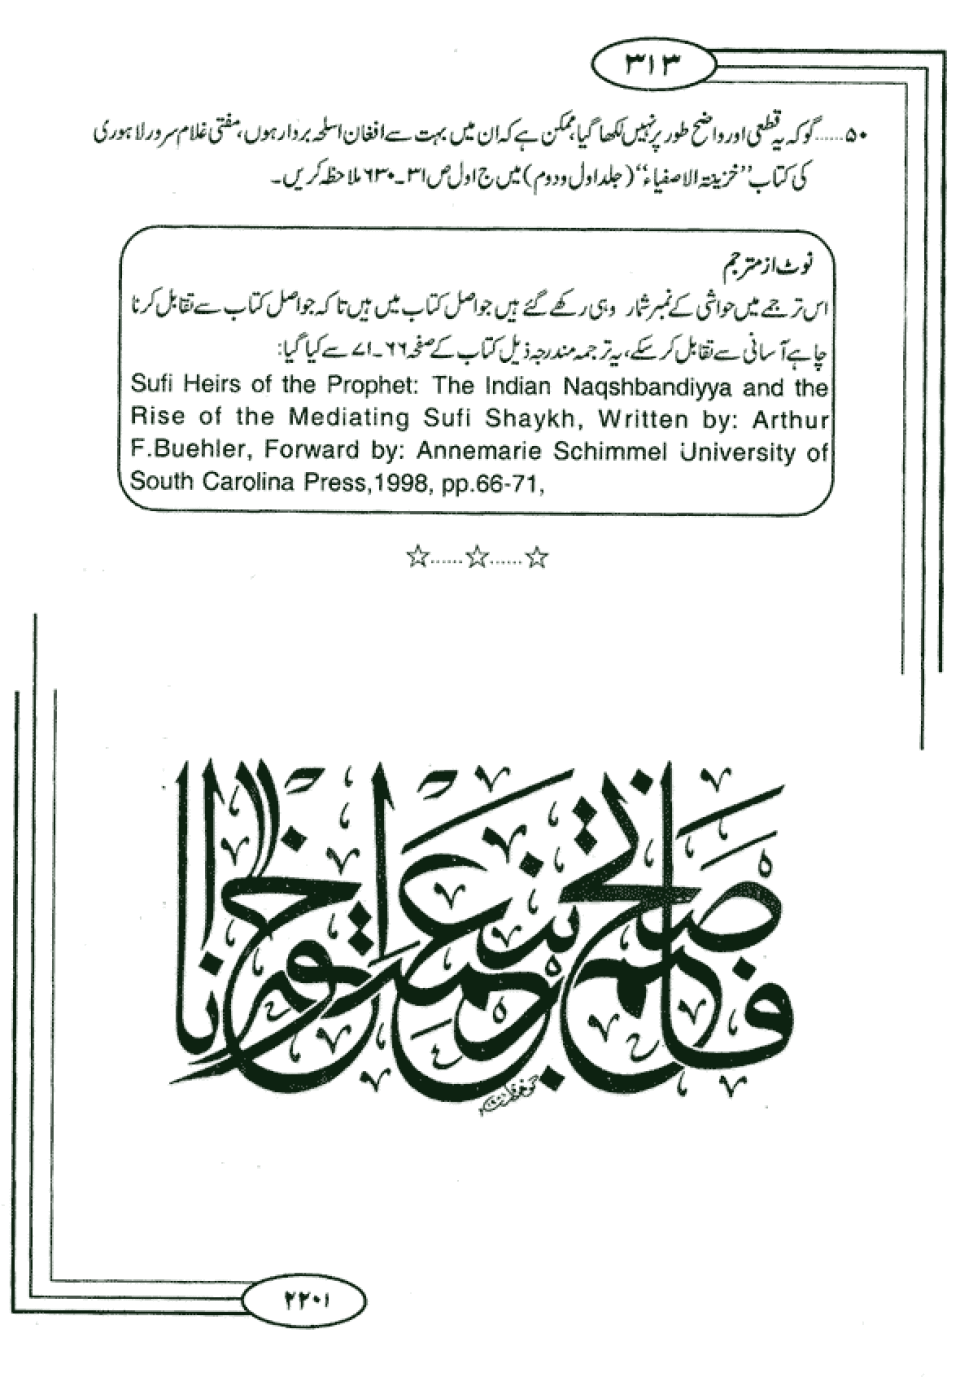 ۳۱۳
۵۰......گو کہ یہ قطعی اور واضح طور پر نہیں لکھا گیا، ممکن ہے کہ ان میں بہت سے افغان اسلحہ بردار ہوں، مفتی غلام سرور لاہوری
کی کتاب ’’خزینۃ الاصفیاء‘‘ (جلد اول و دوم) میں ج اول ص ۳۱۔۶۳۰ ملاحظہ کریں۔
نوٹ از مترجم
اس ترجمے میں حواشی کے نمبر شمار وہی رکھے گئے ہیں جو اصل کتاب میں ہیں تاکہ جو اصل کتاب سے تقابل کرنا
چاہے آسانی سے تقابل کر سکے، یہ ترجمہ مندرجہ ذیل کتاب کے صفحہ ۶۶۔۷۱ سے کیا گیا:
Sufi Heirs of the Prophet: The Indian Naqshbandiyya and the
Rise of the Mediating Sufi Shaykh, Written by: Arthur
F.Buehler, Forward by: Annemarie Schimmel University of
South Carolina Press,1998, pp.66-71,
☆......☆......☆
فاصبحتم بنعمته اخوانا
۲۲۰۱